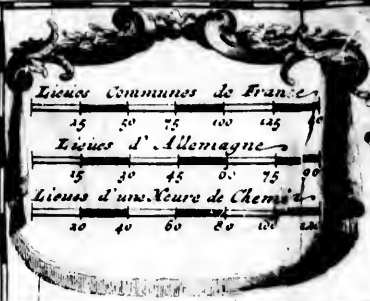 Lieües Communes de France
25 50 75 100 125
Lieües d'Allemagne
15 30 45 60 75 90
Lieues d'une Heure de Chemin
20 40 60 80 100 120